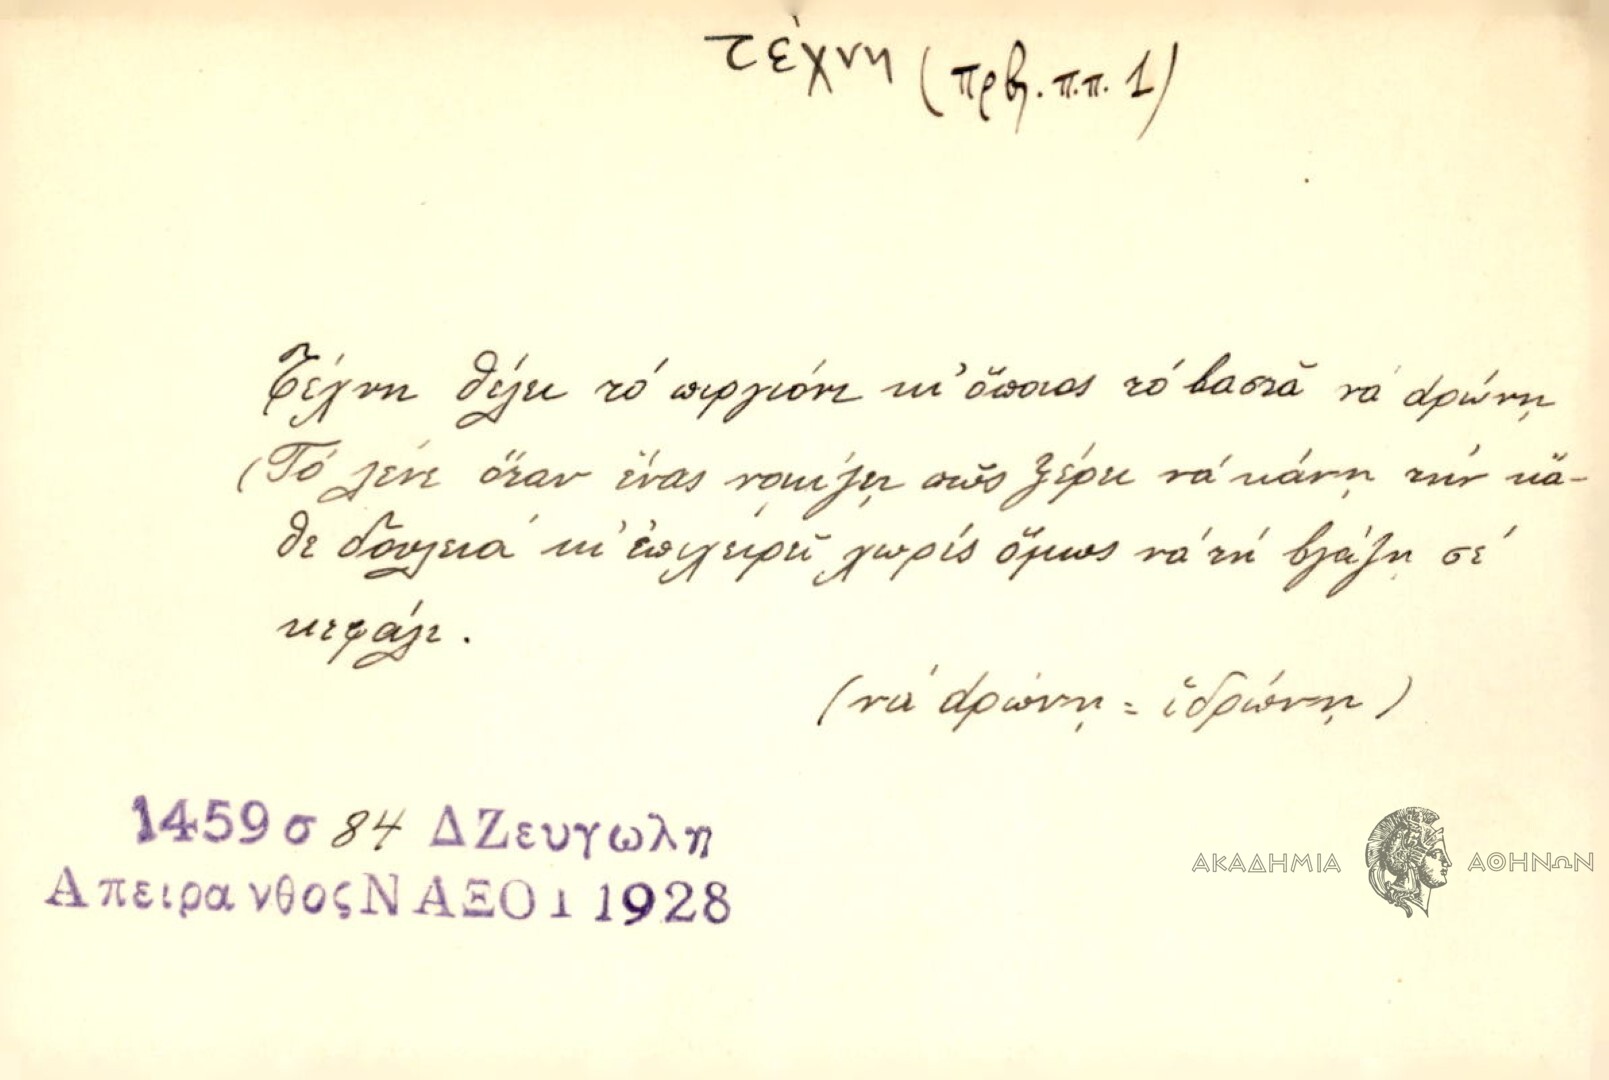 τέχνη (πρβ. π.π. 1)
Τέχνη θέλει τό πιργιόνι κι' ὅποιος τό βαστᾶ νά δρώνῃ
(Τό λένε ὅταν ἕνας νομίζῃ πῶς ξέρει νά κάνῃ τήν κά-
θε δουλειά κι' ἐπιχειρεῖ χωρίς ὅμως νά τή βγάζῃ σέ
κεφάλι.
(νά δρώνῃ = ἱδρώνῃ)
1459 σ 84 ΔΖευγωλη
ΑπειρανθοςΝΑΞΟΙ 1928
ΑΚΑΔΗΜΙΑ ΑΘΗΝΩΝ